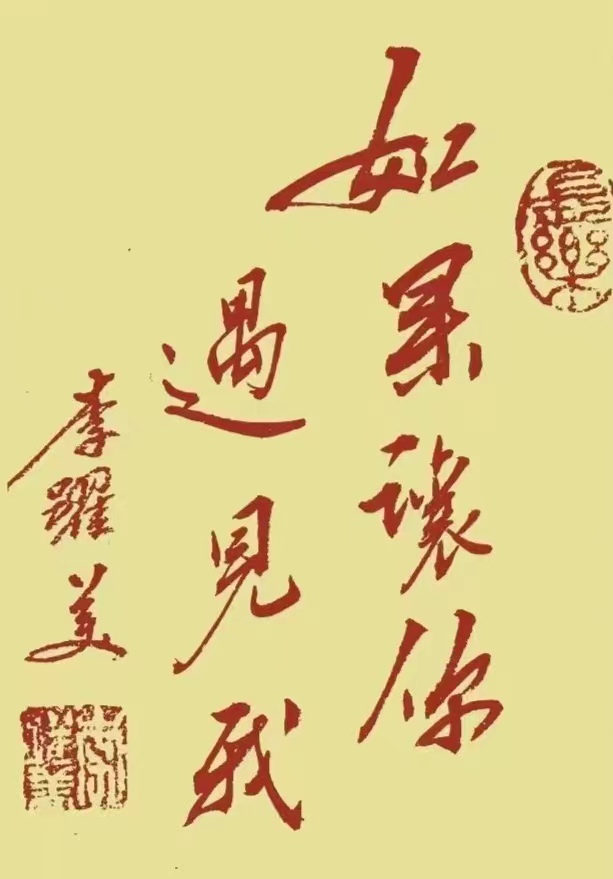 如果讓你
遇見我
李躍美